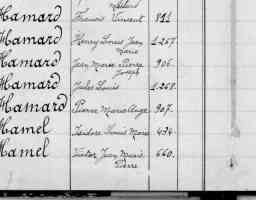 Hamard Francis Vincent 811
Hamard Henry Louis Jean 1.267.
Marie
Hamard Jean Marie Pierre 906.
Joseph
Hamard Jules Louis 1.268.
Hamard Pierre Marie Ange 907.
Hamel Isidore Louis Marie 434.
Hamel Victor Jean Marie 660.
Pierre